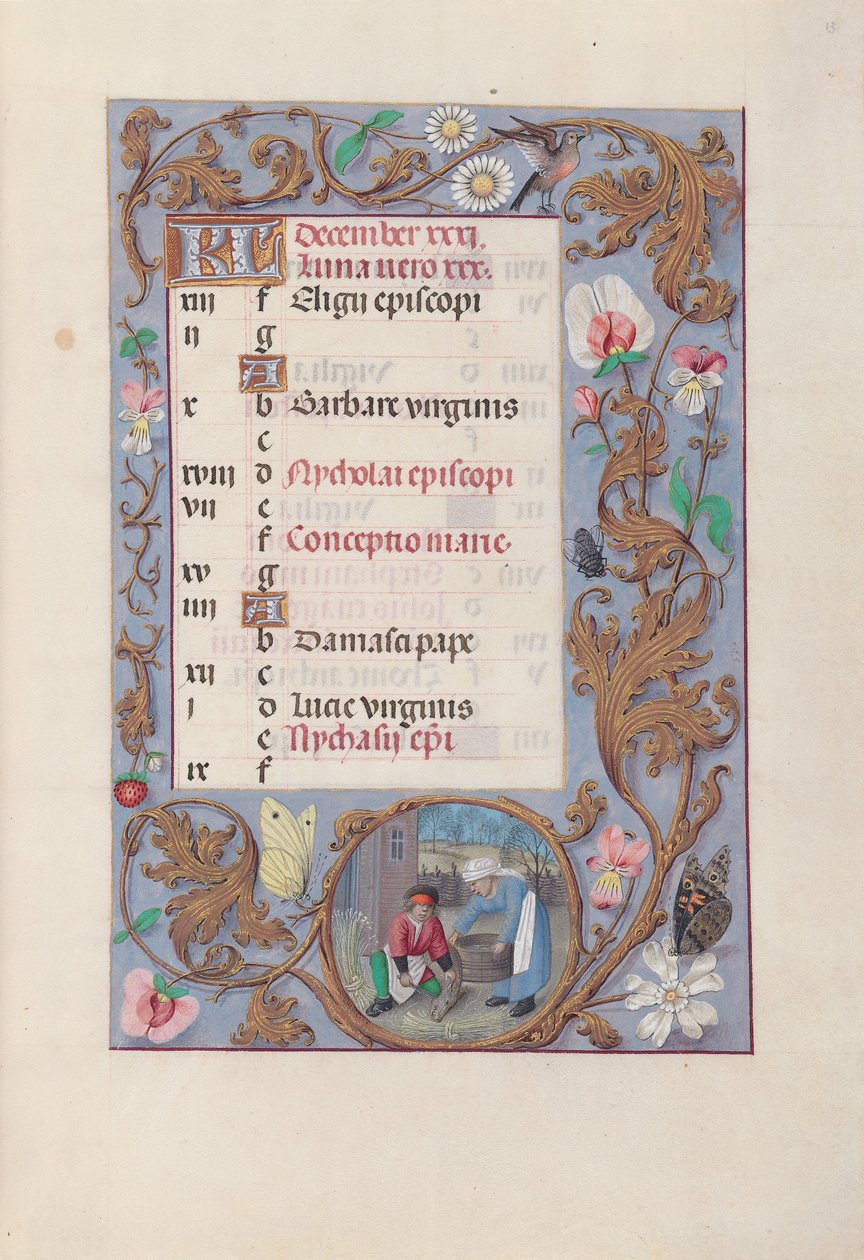 13
KL December xxxj.
Luna uero xxx.
xiij f Eligij episcopi
ij g
A
x b Barbare virginis
c
xviij d Nycholai episcopi
vij e
f Conceptio marie
xv g
iiij A
b Damasci pape
xij c
j d Lucie virginis
e Nychasij ep̃i
ix f